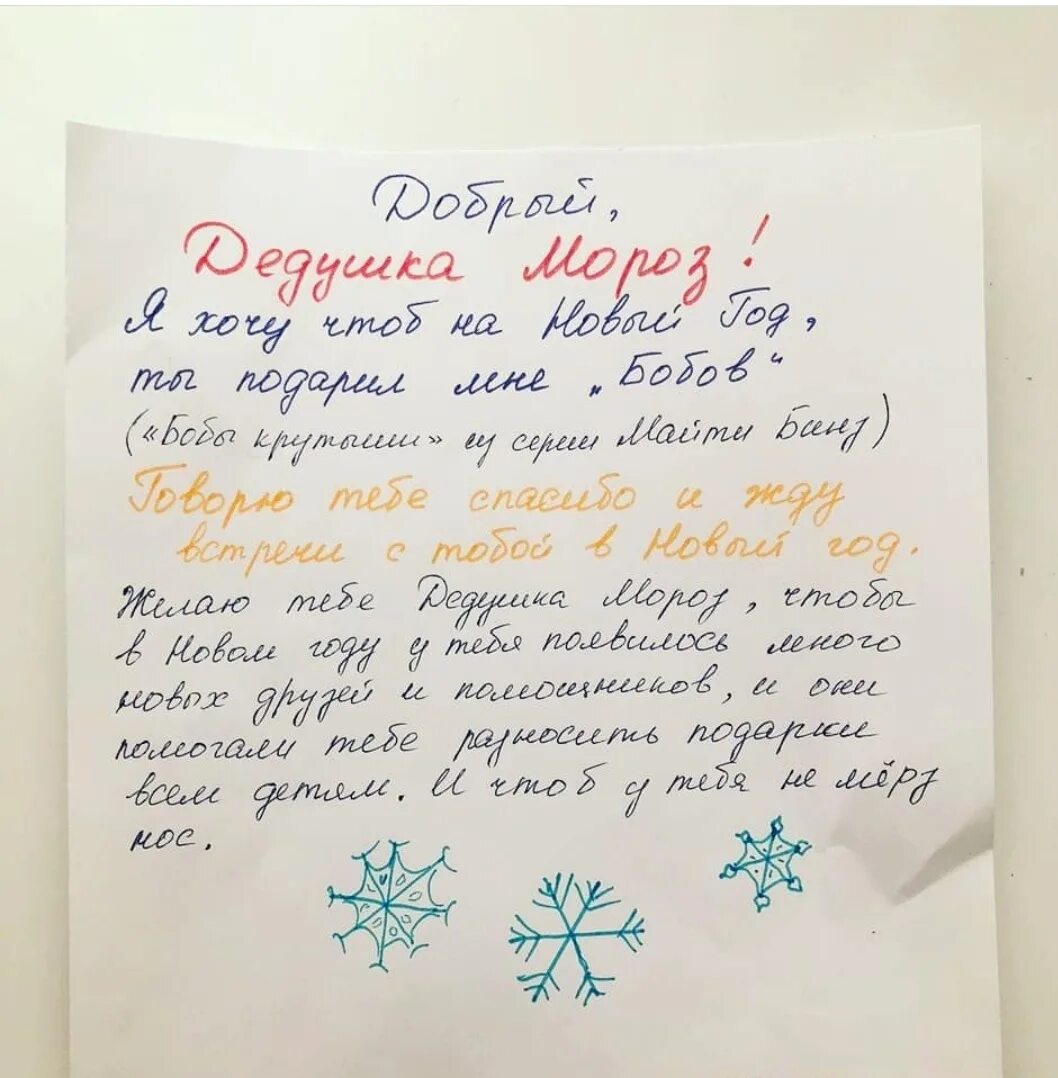 Добрый,
Дедушка Мороз!
Я хочу чтоб на Новый Год,
ты подарил мне „Бобов“
(«Бобы крутыши» из серии Майти Бинз)
Говорю тебе спасибо и жду
встречи с тобой в Новый год.
Желаю тебе Дедушка Мороз, чтобы
в Новом году у тебя появилось много
новых друзей и помощников, и они
помогали тебе разносить подарки
всем детям. И чтоб у тебя не мёрз
нос.